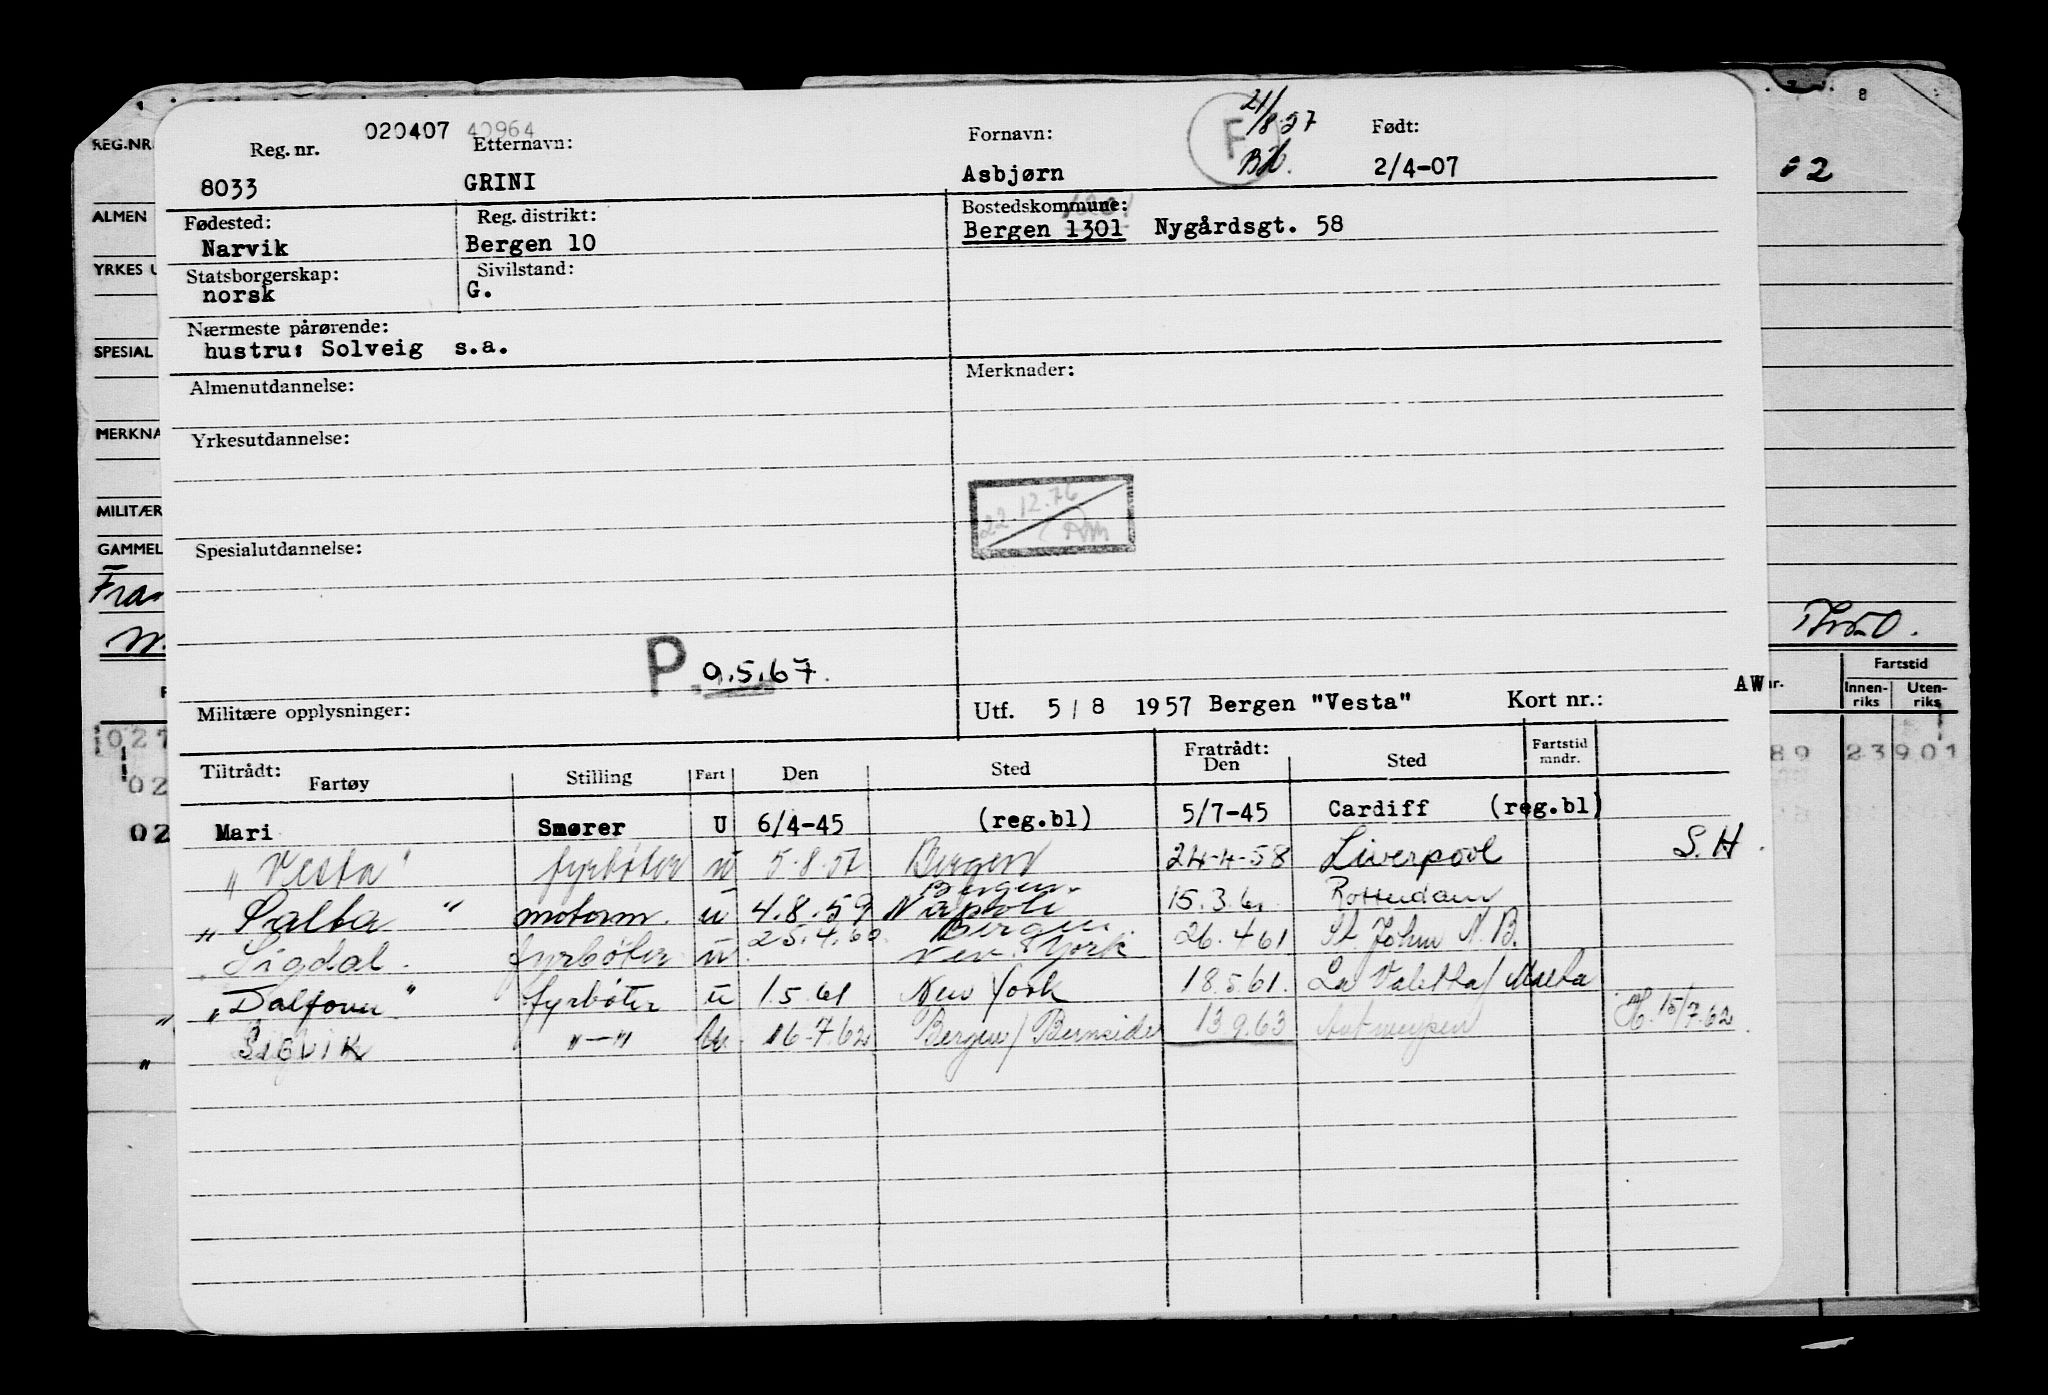 020407 40964
Reg. nr. Etternavn: Fornavn: F 21/8-57 Født:
8033 GRINI Asbjørn 2/4-07
Fødested: Reg. distrikt: Bostedskommune:
Narvik Bergen 10 Bergen 1301 Nygårdsgt. 58
Statsborgerskap: Sivilstand:
norsk G.
Nærmeste pårørende:
hustru: Solveig s.a.
Almenutdannelse: Merknader:
Yrkesutdannelse:
22.12.76
Spesialutdannelse:
P. 9.5.67.
Militære opplysninger: Utf. 5/8 1957 Bergen "Vesta" Kort nr.: AW
Tiltrådt: Fratrådt:
Fartøy Stilling Fart Den Sted Den Sted Fartstid mndr.
Mari Smører U 6/4-45 (reg.bl) 5/7-45 Cardiff (reg.bl)
"Vesta" fyrbøter u 5.8.57 Bergen 24-4-58 Liverpool S.H.
"Salta" motorm. u 4.8.59 Bergen. Napoli 15.3.61 Rotterdam
Sigdal. fyrbøter u 25.4.60. Bergen. New York 26.4.61 St. John N.B.
"Dalfonn" fyrbøter u 1.5.61 New York 18.5.61. La Valetta/Malta
SIGVIK "—" u 16.7.62 Bergen/ 13.9.63 Antwerpen 15/7.62
REG.NR.
ALMEN
YRKES U
SPESIAL
MERKNA
MILITÆR
GAMMEL
Fra
02
8
Fartstid
Innen-riks Uten-riks
027
02
02
89 23901